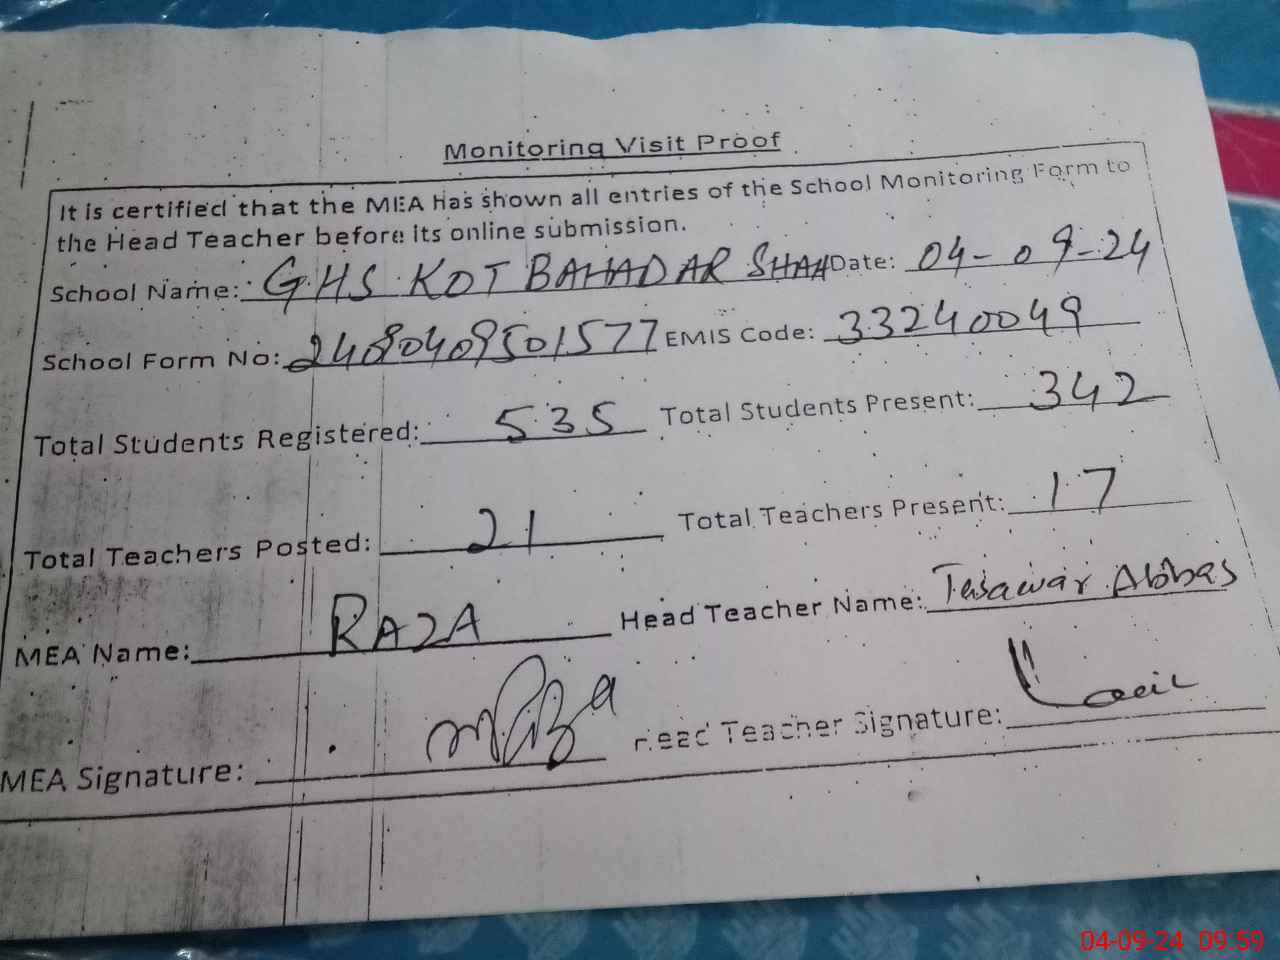 Monitoring Visit Proof
It is certified that the MEA has shown all entries of the School Monitoring Form to
the Head Teacher before its online submission.
School Name: GHS KOT BAHADAR SHAH Date: 04-09-24
School Form No: 24090409501577 EMIS Code: 33240049
Total Students Registered: 535 Total Students Present: 342
Total Teachers Posted: 21 Total Teachers Present: 17
MEA Name: RAZA Head Teacher Name: Tasawar Abbas
MEA Signature: Head Teacher Signature:
04-09-24 09:59